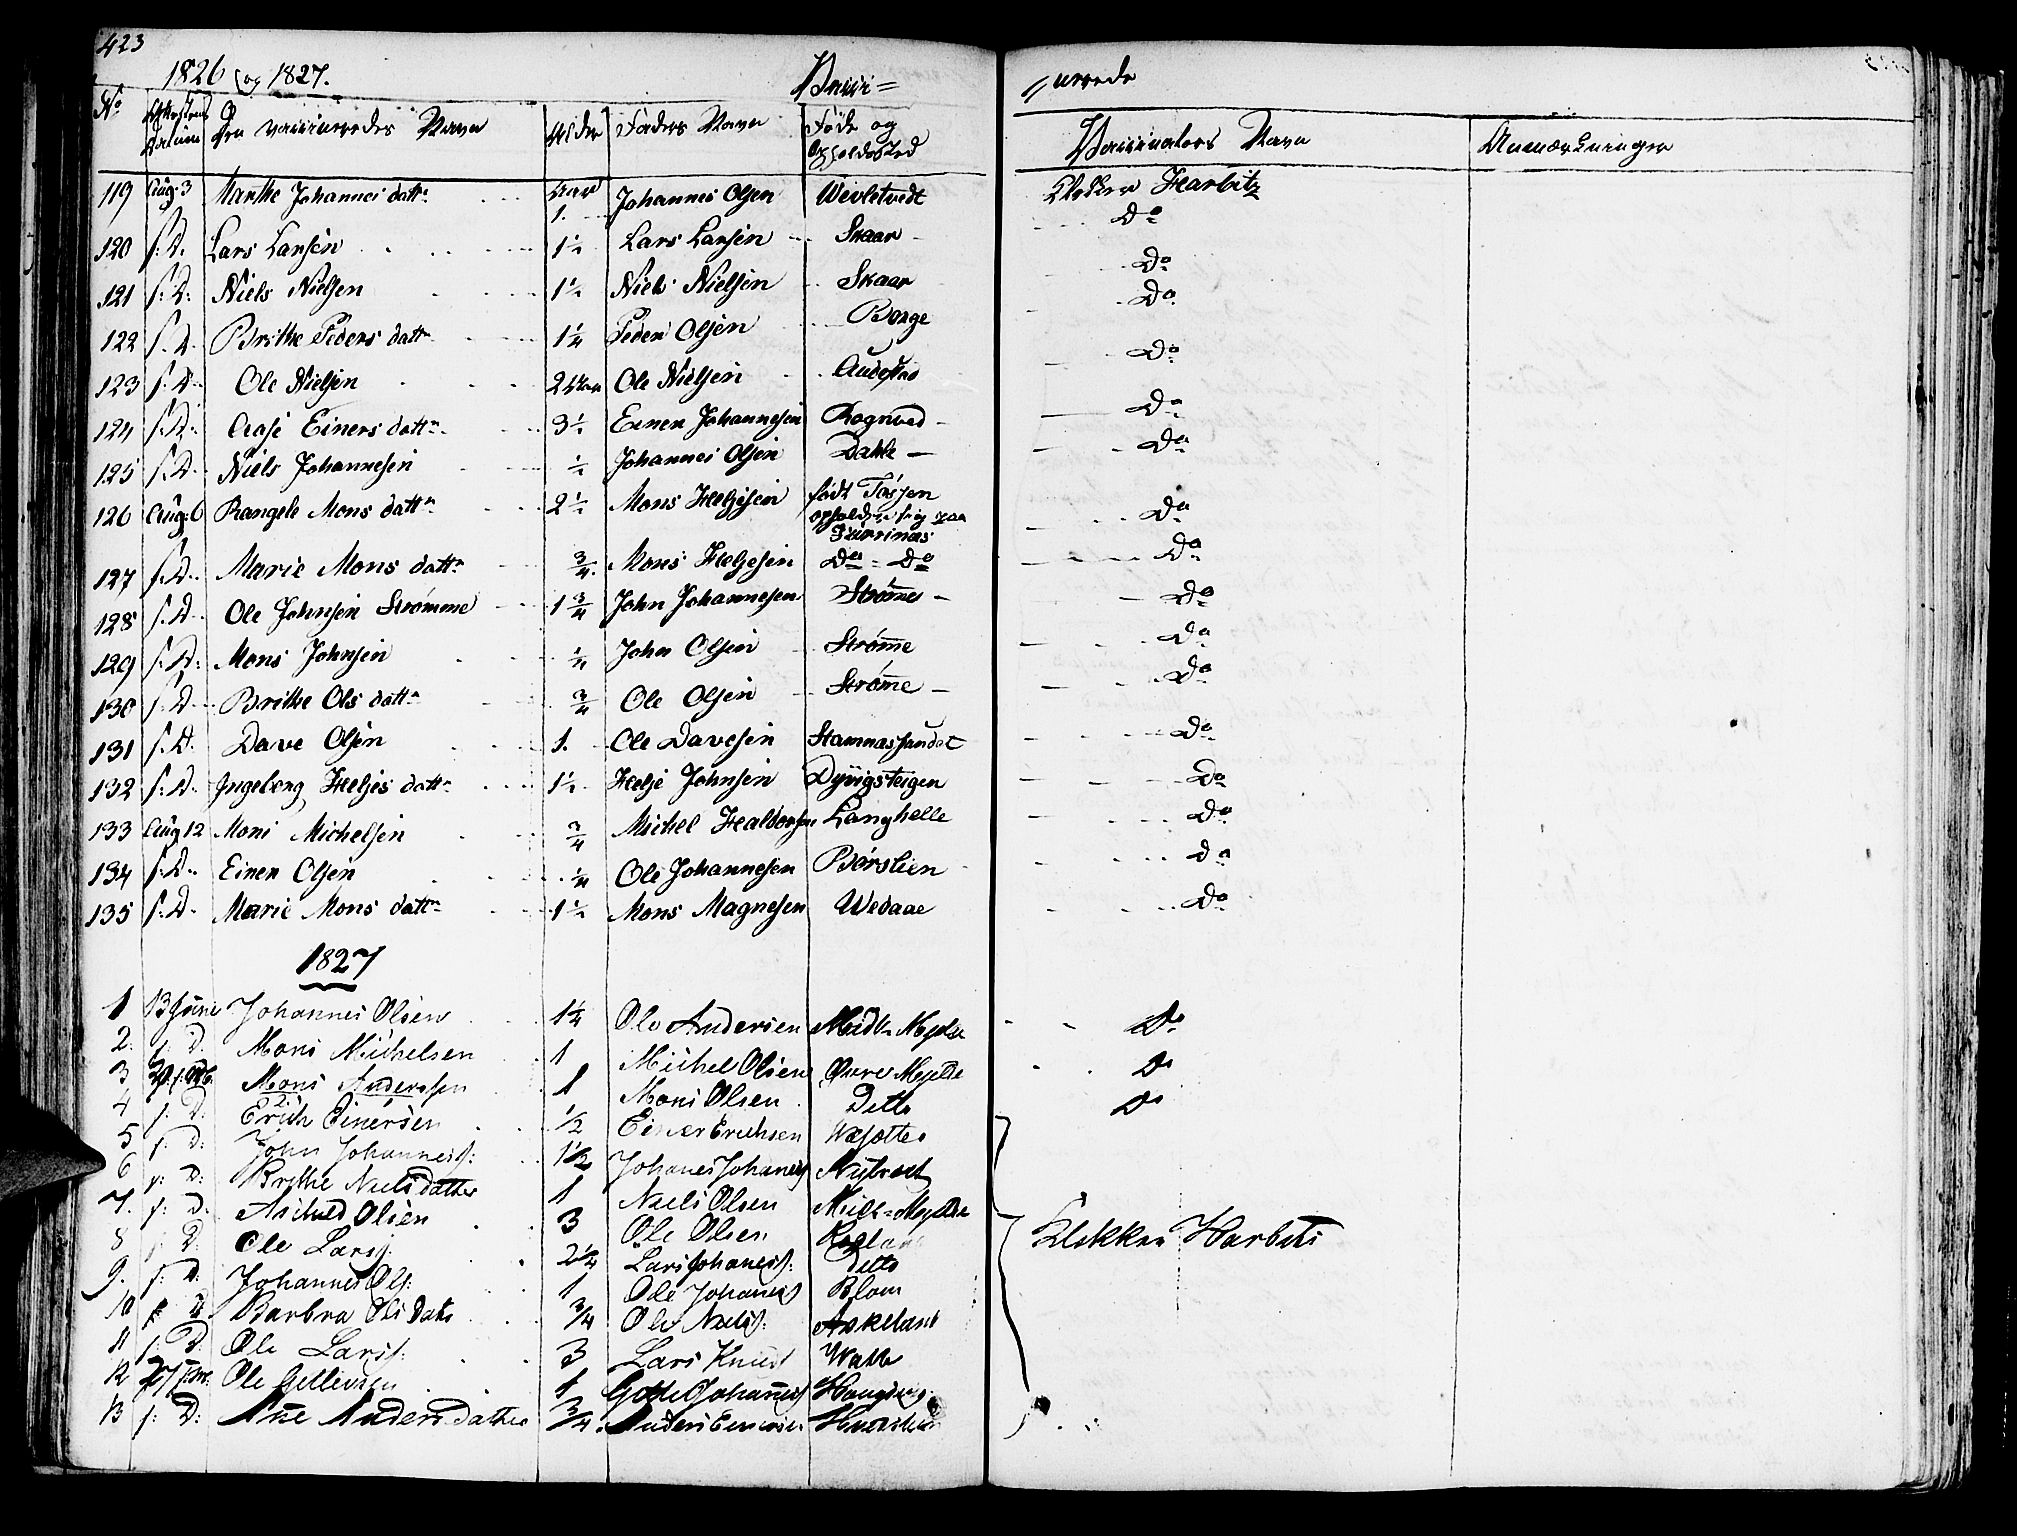 423
1826 og 1827.
Vacci=
=nerede
No Attestens Datum Den vaccineredes Navn Alder Faders Navn Føde og Opholdssted Vaccinators Navn Anmærkninger
119 Aug: 3 Marthe Johannes dattr 1. Johannes Olsen Wevletvedt Klokker Harbitz
120 s: D. Lars Larsen 1½ Lars Larsen Skaar Do
121 s: D: Niels Nielsen 1½ Niels Nielsen Skaar Do
122 s: D. Brithe Peders dattr 1¼ Peder Olsen Borge Do
123 s: D. Ole Nielsen 2 Ole Nielsen Do
124 s: D. Aase Einers dattr 3½ Einer Johannesen Rognved Do
125 s: D. Niels Johannesen ½ Johannes Olsen Dahle Do
126 Aug: 6 Rangele Mons dattr 2½ Mons Helgesen født Tossen opholder sig paa Do
127 s: D. Marie Mons dattr ¾. Mons Helgesen Do = Do Do
128 s: D. Ole Johnsen Strømme 1¾ John Johannesen Strømme Do
129 s: D: Mons Johnsen ¼ John Olsen Strømme Do
130 s: D. Brithe Ols dattr ¾ Ole Olsen Strømme Do
131 s: D. Dave Olsen 1. Ole Davesen Stamnessandet Do
132 s: D. Ingeborg Heljes dattr 1½ Helje Johnsen Dyvigsteigen Do
133 Aug 12 Mons Michelsen ¾ Michel Haldorsen Langhelle Do
134 s: D. Einer Olsen ¼ Ole Johannesen Børslien Do
135 s: D. Marie Mons dattr 1½ Mons Magnesen Wedaae Do
1827
1 13 Juni Johannes Olsen 1¼ Ole Andersen Midt= Mjelde Do
2. s: D. Mons Michelsen 1 Michel Olsen Øvre Mjelde Do
3 Mons Anderssen 1 Mons Olsen Ditto Do
4 s: D. Erich Einersen ½ Einer Erichsen
5 s: D: John Johanness: 1½ Johanes Johaness
6 s: D: Brithe Niels datter 1 Niels Olsen Midt= Mjelde
7. s: D. Olsen 3 Ole Olsen
8 s: D: Ole Larss: 2¼ Lars Johaness: Ditto Klokker Harbits
9. s: D: Johannes Ols: 1 Ole Johaness Blom
10 s: D Barbra Ols Datr ¾ Ole Niels: Askeland
11 s: D: Ole Lars: 3 Lars Knuds
12 27 Ole Gullevsen 1 Johaness
13 s: D: Ane Anders datter ¾. Anders